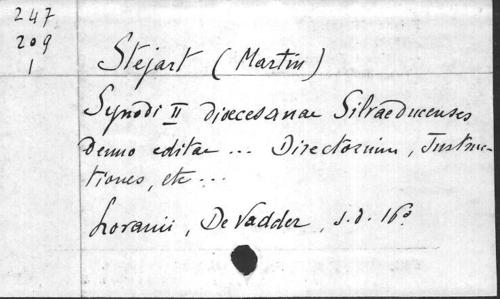 247
209
1
Stejart (Martin)
Synodi II dioecesanae Silvaeducenses
Denuo editae ... Directorium, Instruc-
tiones, etc...
Lovanii, De Vadder, s.d. 16°